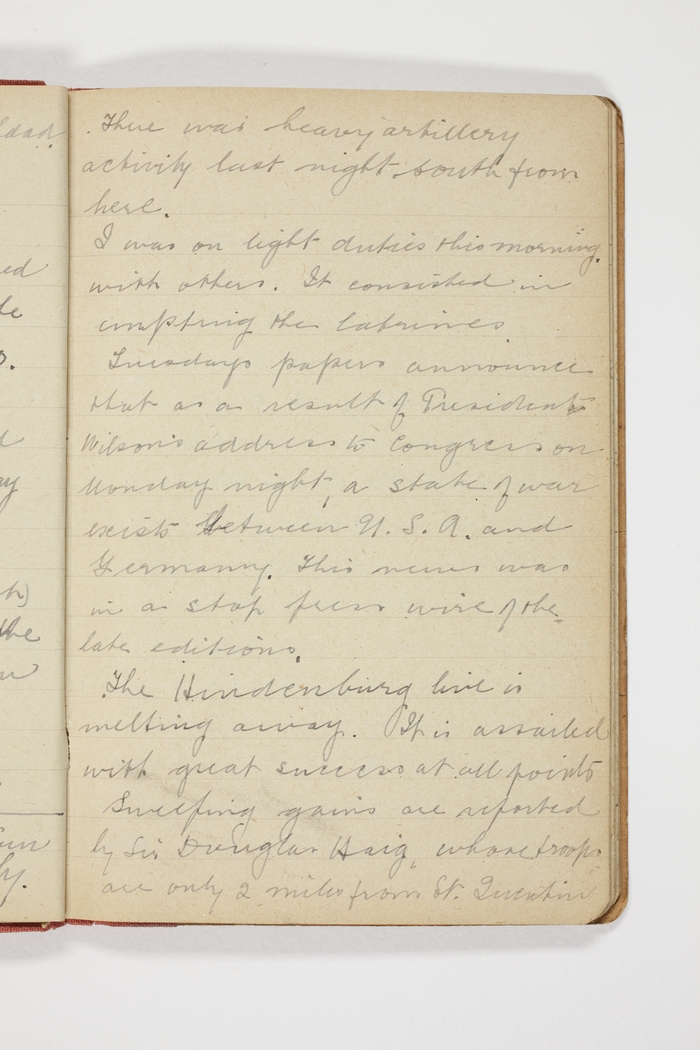 There was heavy artillery
activity last night south from
here.
I was on light duties this morning
with others. It consisted in
emptying the latrines
Tuesdays papers announce
that as a result of Presidents
Wilson's address to Congress on
Monday night, a state of war
exists between U. S. A. and
Germany. This news was
in a stop press wire of the
late editions.
The Hindenburg line is
melting away. It is assailed
with great success at all points
Sweeping gains are reported
by Sir Douglas Haig, whose troops
are only 2 miles from St. Quentin